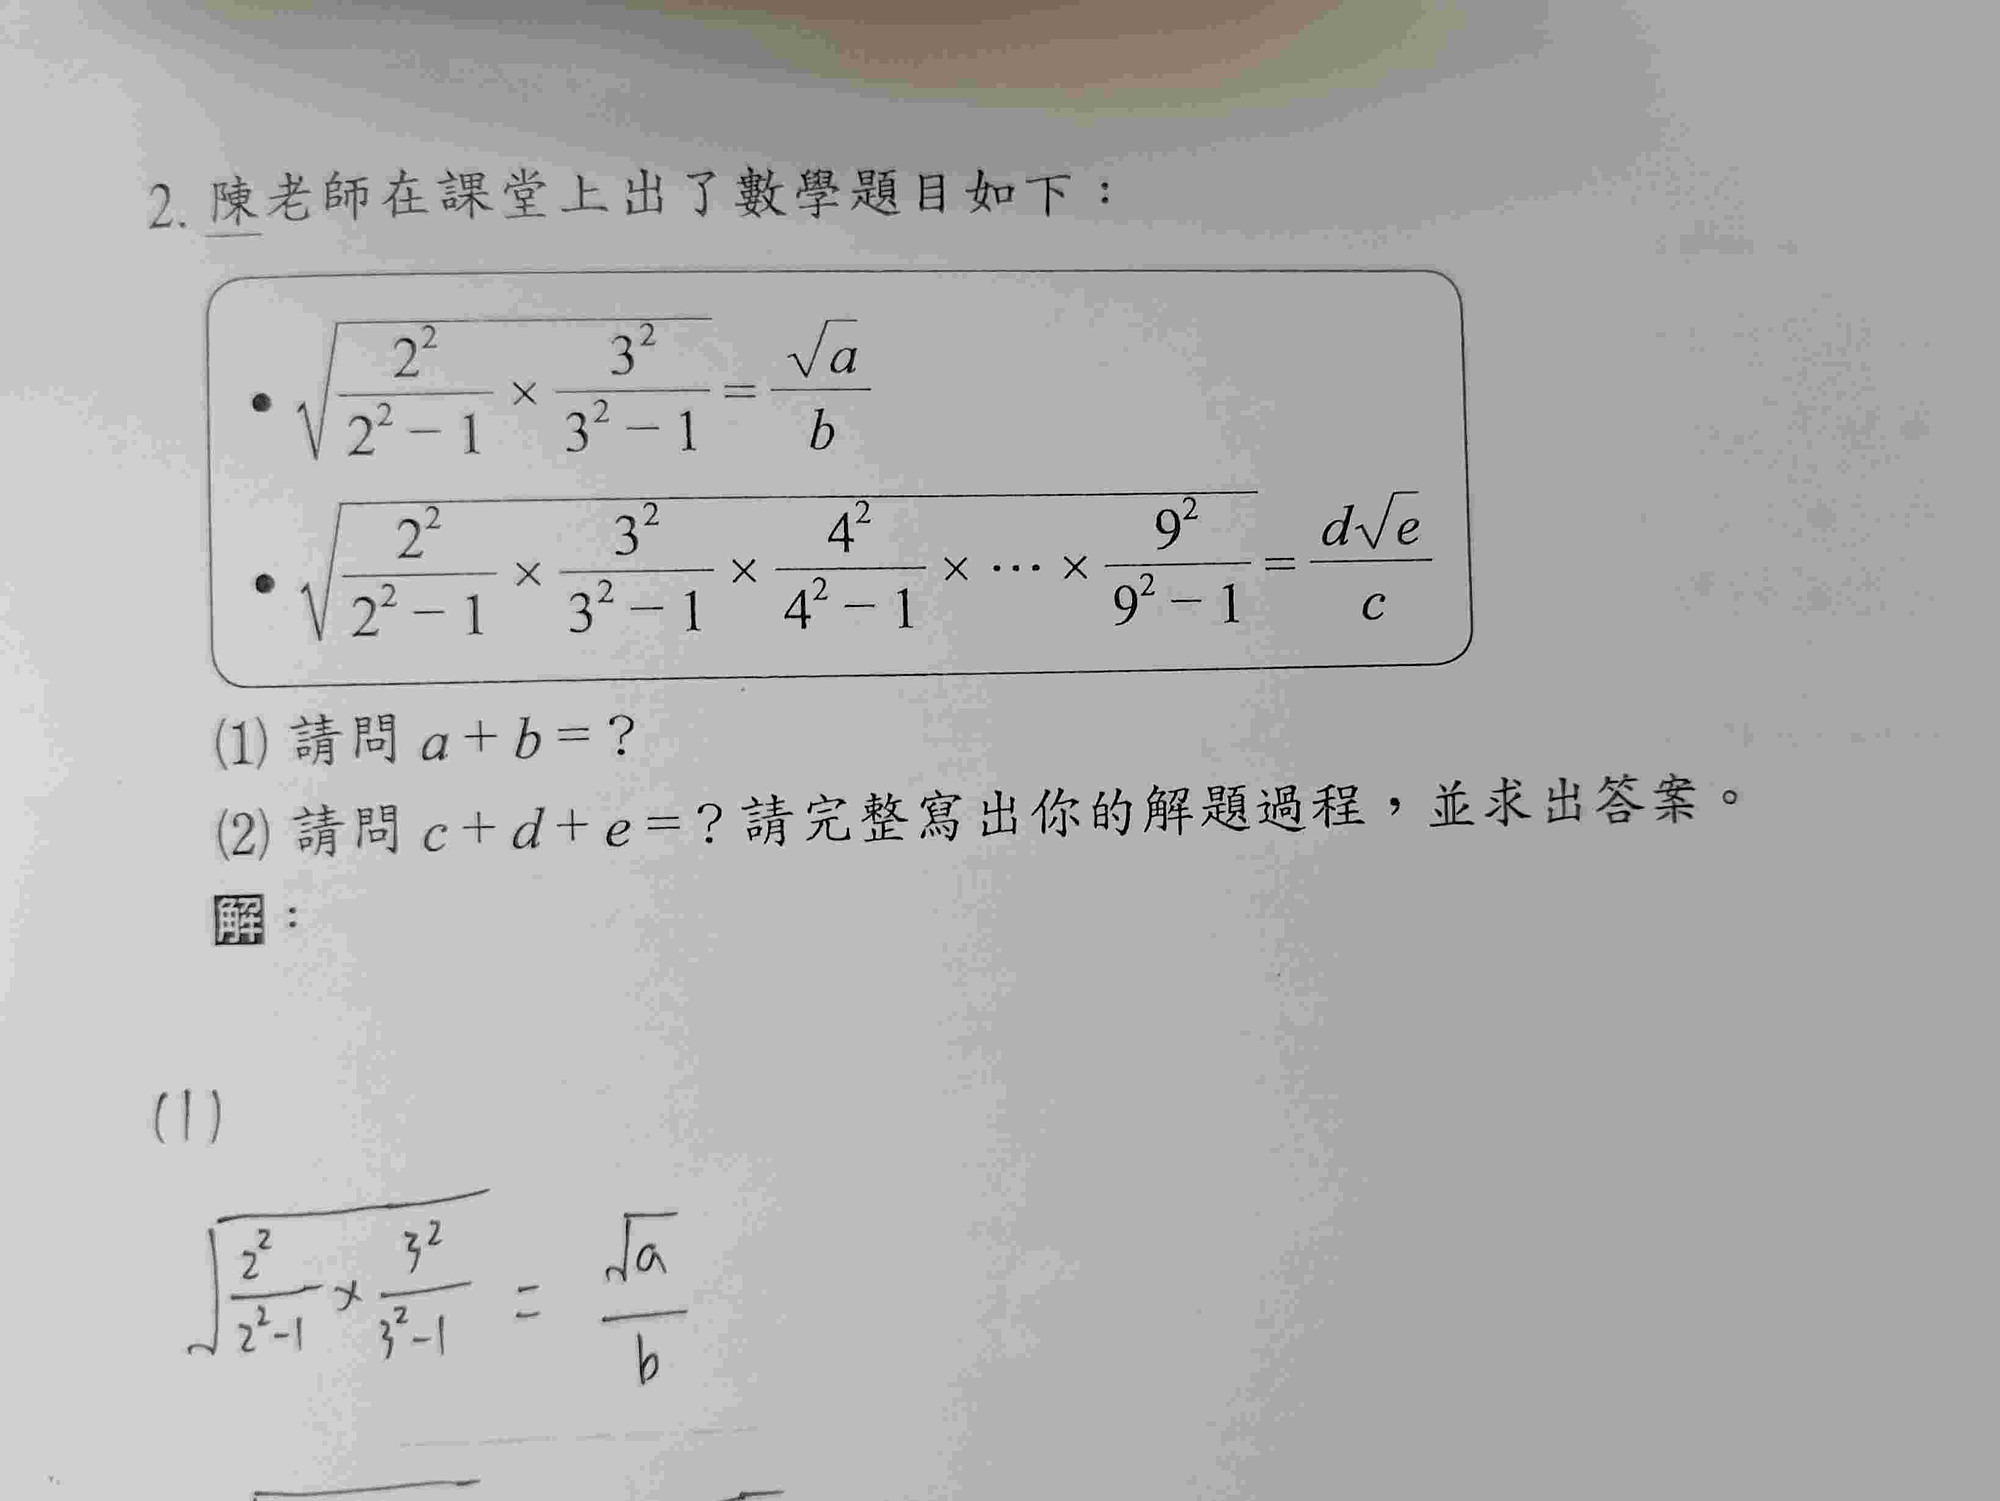 2. 陳老師在課堂上出了數學題目如下：
• √(2²/(2²－1) × 3²/(3²－1)) = √a/b
• √(2²/(2²－1) × 3²/(3²－1) × 4²/(4²－1) × … × 9²/(9²－1)) = d√e/c
(1) 請問 a＋b＝？
(2) 請問 c＋d＋e＝？請完整寫出你的解題過程，並求出答案。
解：
(1)
√(2²/(2²-1) × 3²/(3²-1)) = √a/b